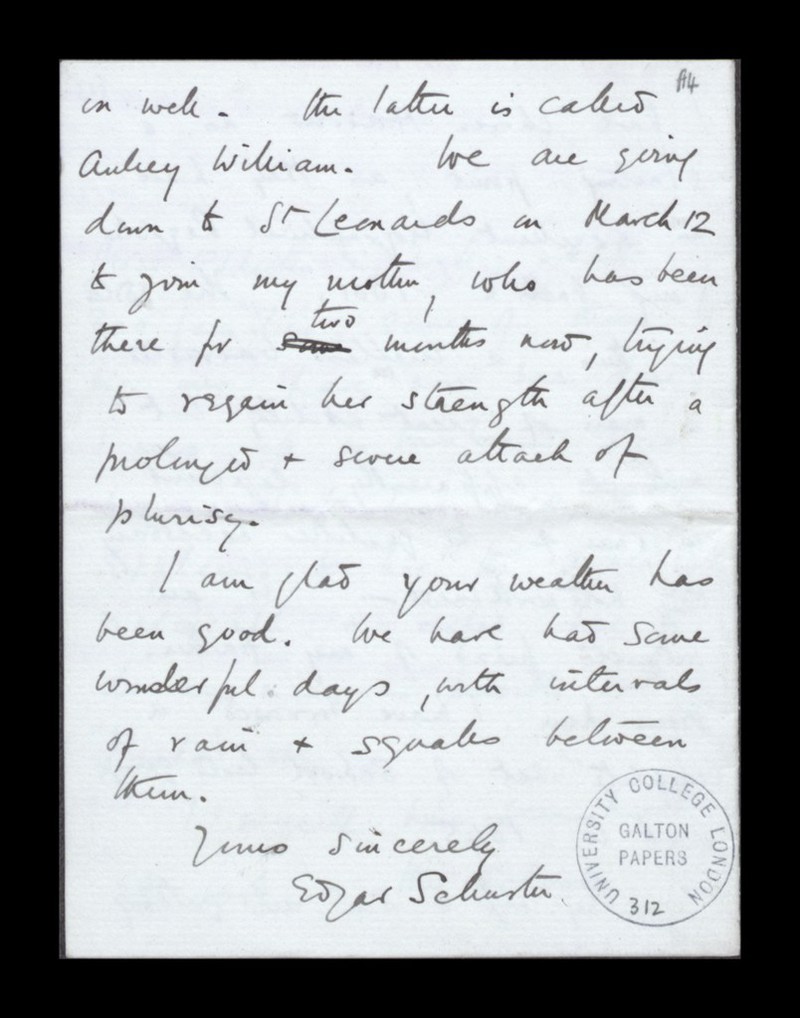 A4
on well. The latter is called
Aubrey William. We are going
down to St Leonards on March 12
to join my mother, who has been
there for some two months now, trying
to regain her strength after a
prolonged + severe attack of
plurisy.
I am glad your weather has
been good. We have had some
wonderful days, with intervals
of rain + squalls between
them.
Yours sincerely
Edgar Schuster
UNIVERSITY COLLEGE LONDON
GALTON
PAPERS
312